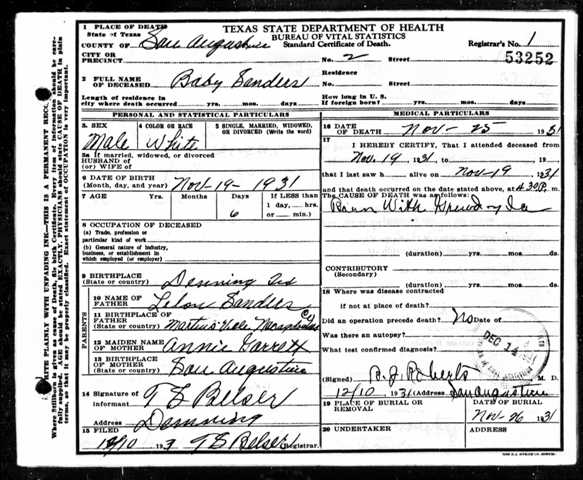 1 PLACE OF DEATH
State of Texas
COUNTY OF San Augustine
CITY OR
PRECINCT
TEXAS STATE DEPARTMENT OF HEALTH
BUREAU OF VITAL STATISTICS
Standard Certificate of Death.
Registrar's No. 1
No. 2 Street
53252
2 FULL NAME
OF DECEASED Baby Sanders
Residence
No. Street
Length of residence in
city where death occurred yrs. mos. days
How long in U. S.
If foreign born? yrs. mos. days
PERSONAL AND STATISTICAL PARTICULARS
3. SEX
Male
4 COLOR OR RACE
White
5 SINGLE, MARRIED, WIDOWED,
OR DIVORCED (Write the word)
5a If married, widowed, or divorced
HUSBAND of
(or) WIFE of
6 DATE OF BIRTH
(Month, day, and year) Nov-19-1931
7 AGE Years Months Days
6
If LESS than
1 day, hrs.
or min.
8 OCCUPATION OF DECEASED
(a) Trade, profession, or
particular kind of work
(b) General nature of industry,
business, or establishment in
which employed (or employer)
9 BIRTHPLACE
(State or country) Denning
10 NAME OF
FATHER Sanders
11 BIRTHPLACE OF FATHER
(State or country)
12 MAIDEN NAME
OF MOTHER Annie Garrett
13 BIRTHPLACE
OF MOTHER
(State or country) San Augustine
PARENTS
14 Signature of
Informant T S Belser
Address Denning
15 FILED
12/10 1931 T S Belser Registrar.
MEDICAL PARTICULARS
16 DATE
OF DEATH Nov-25 1931
17 I HEREBY CERTIFY, That I attended deceased from
Nov. 19 1931. to 19
that I last saw h alive on Nov-19 1931
and that death occurred on the date stated above, at 6 30 P. m.
The CAUSE OF DEATH was as follows:
Born With
(duration) yrs. mos. ds.
CONTRIBUTORY
(Secondary)
(duration) yrs. mos. ds.
18 Where was disease contracted
if not at place of death?
Did an operation precede death? No Date of
Was there an autopsy?
What test confirmed diagnosis?
DEC 14 1931
(Signed) Roberts M. D.
12/10 1931 (Address) San Augustine
19 PLACE OF BURIAL OR
REMOVAL
DATE OF BURIAL
Nov-26 1931
20 UNDERTAKER
ADDRESS
WRITE PLAINLY WITH UNFADING INK—THIS IS A PERMANENT RECORD.